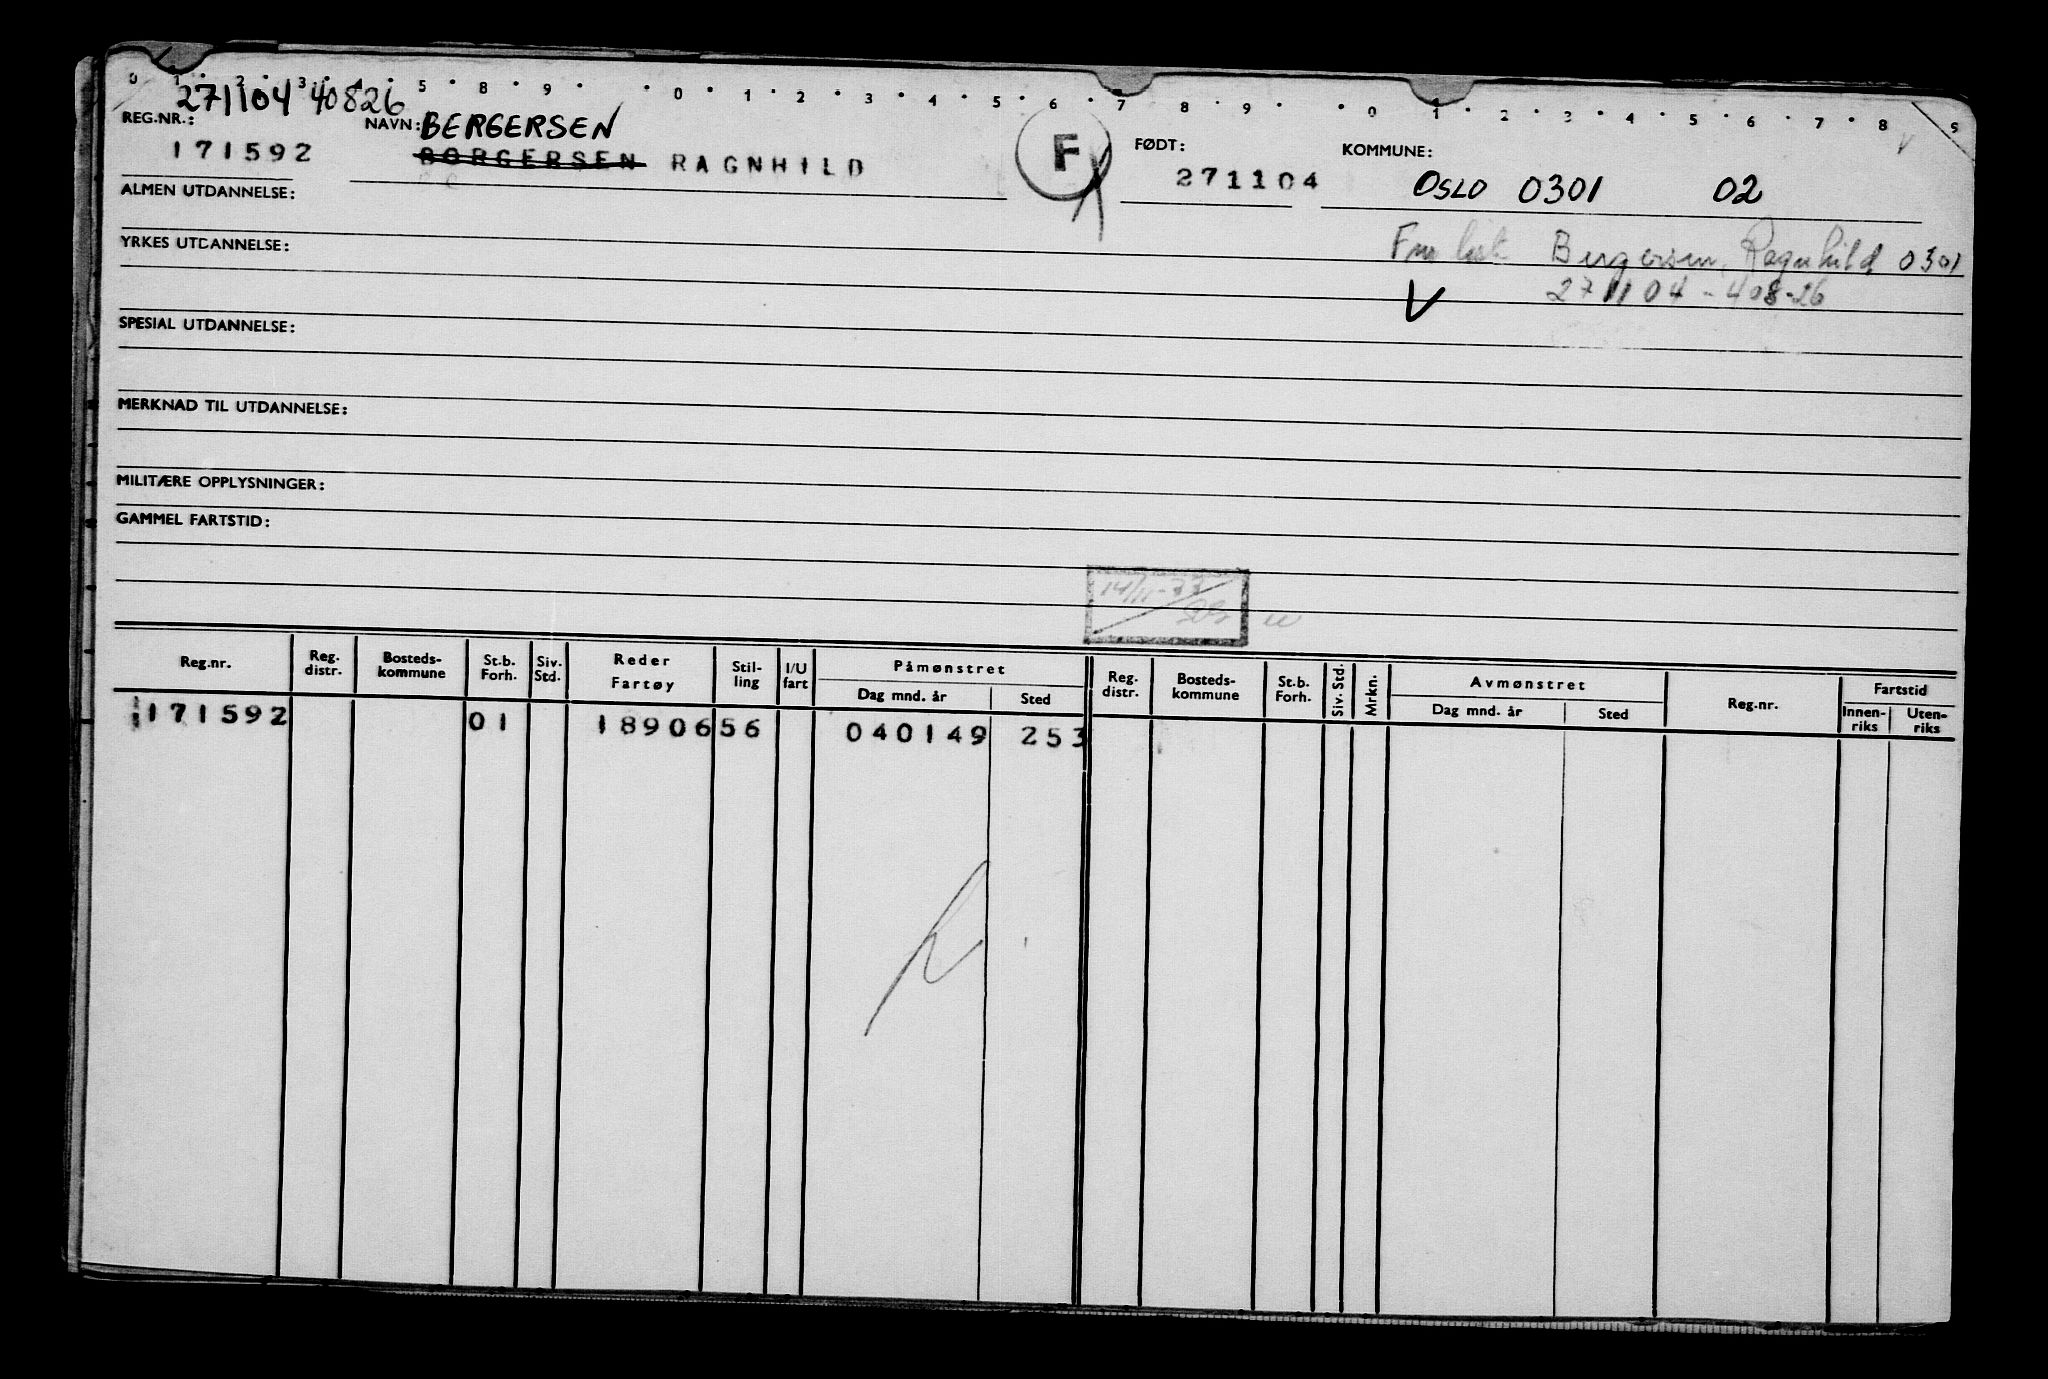 0 1 · 2 · 3 · 4 · 5 · 8 · 9 · · 0 · 1 · 2 · 3 · 4 · 5 · 6 · 7 · 8 · 9 · · 0 · 1 · 2 · 3 · 4 · 5 · 6 · 7 · 8 · 9
271104 40826
REG.NR.: NAVN: BERGERSEN FØDT: KOMMUNE:
171592 BORGERSEN RAGNHILD F 271104 OSLO 0301 02
ALMEN UTDANNELSE:
YRKES UTDANNELSE: Bergersen, Ragnhild 0301
V 271104-408-26
SPESIAL UTDANNELSE:
MERKNAD TIL UTDANNELSE:
MILITÆRE OPPLYSNINGER:
GAMMEL FARTSTID:
14/11-73
Reg.nr. Reg. distr. Bosteds-kommune St.b. Forh. Siv. Std. Reder Fartøy Stil-ling I/U fart Påmønstret Dag mnd. år Sted Reg. distr. Bosteds-kommune St.b. Forh. Siv. Std. Mrkn. Avmønstret Dag mnd. år Sted Reg.nr. Fartstid Innen-riks Uten-riks
171592 01 18906 56 040149 253